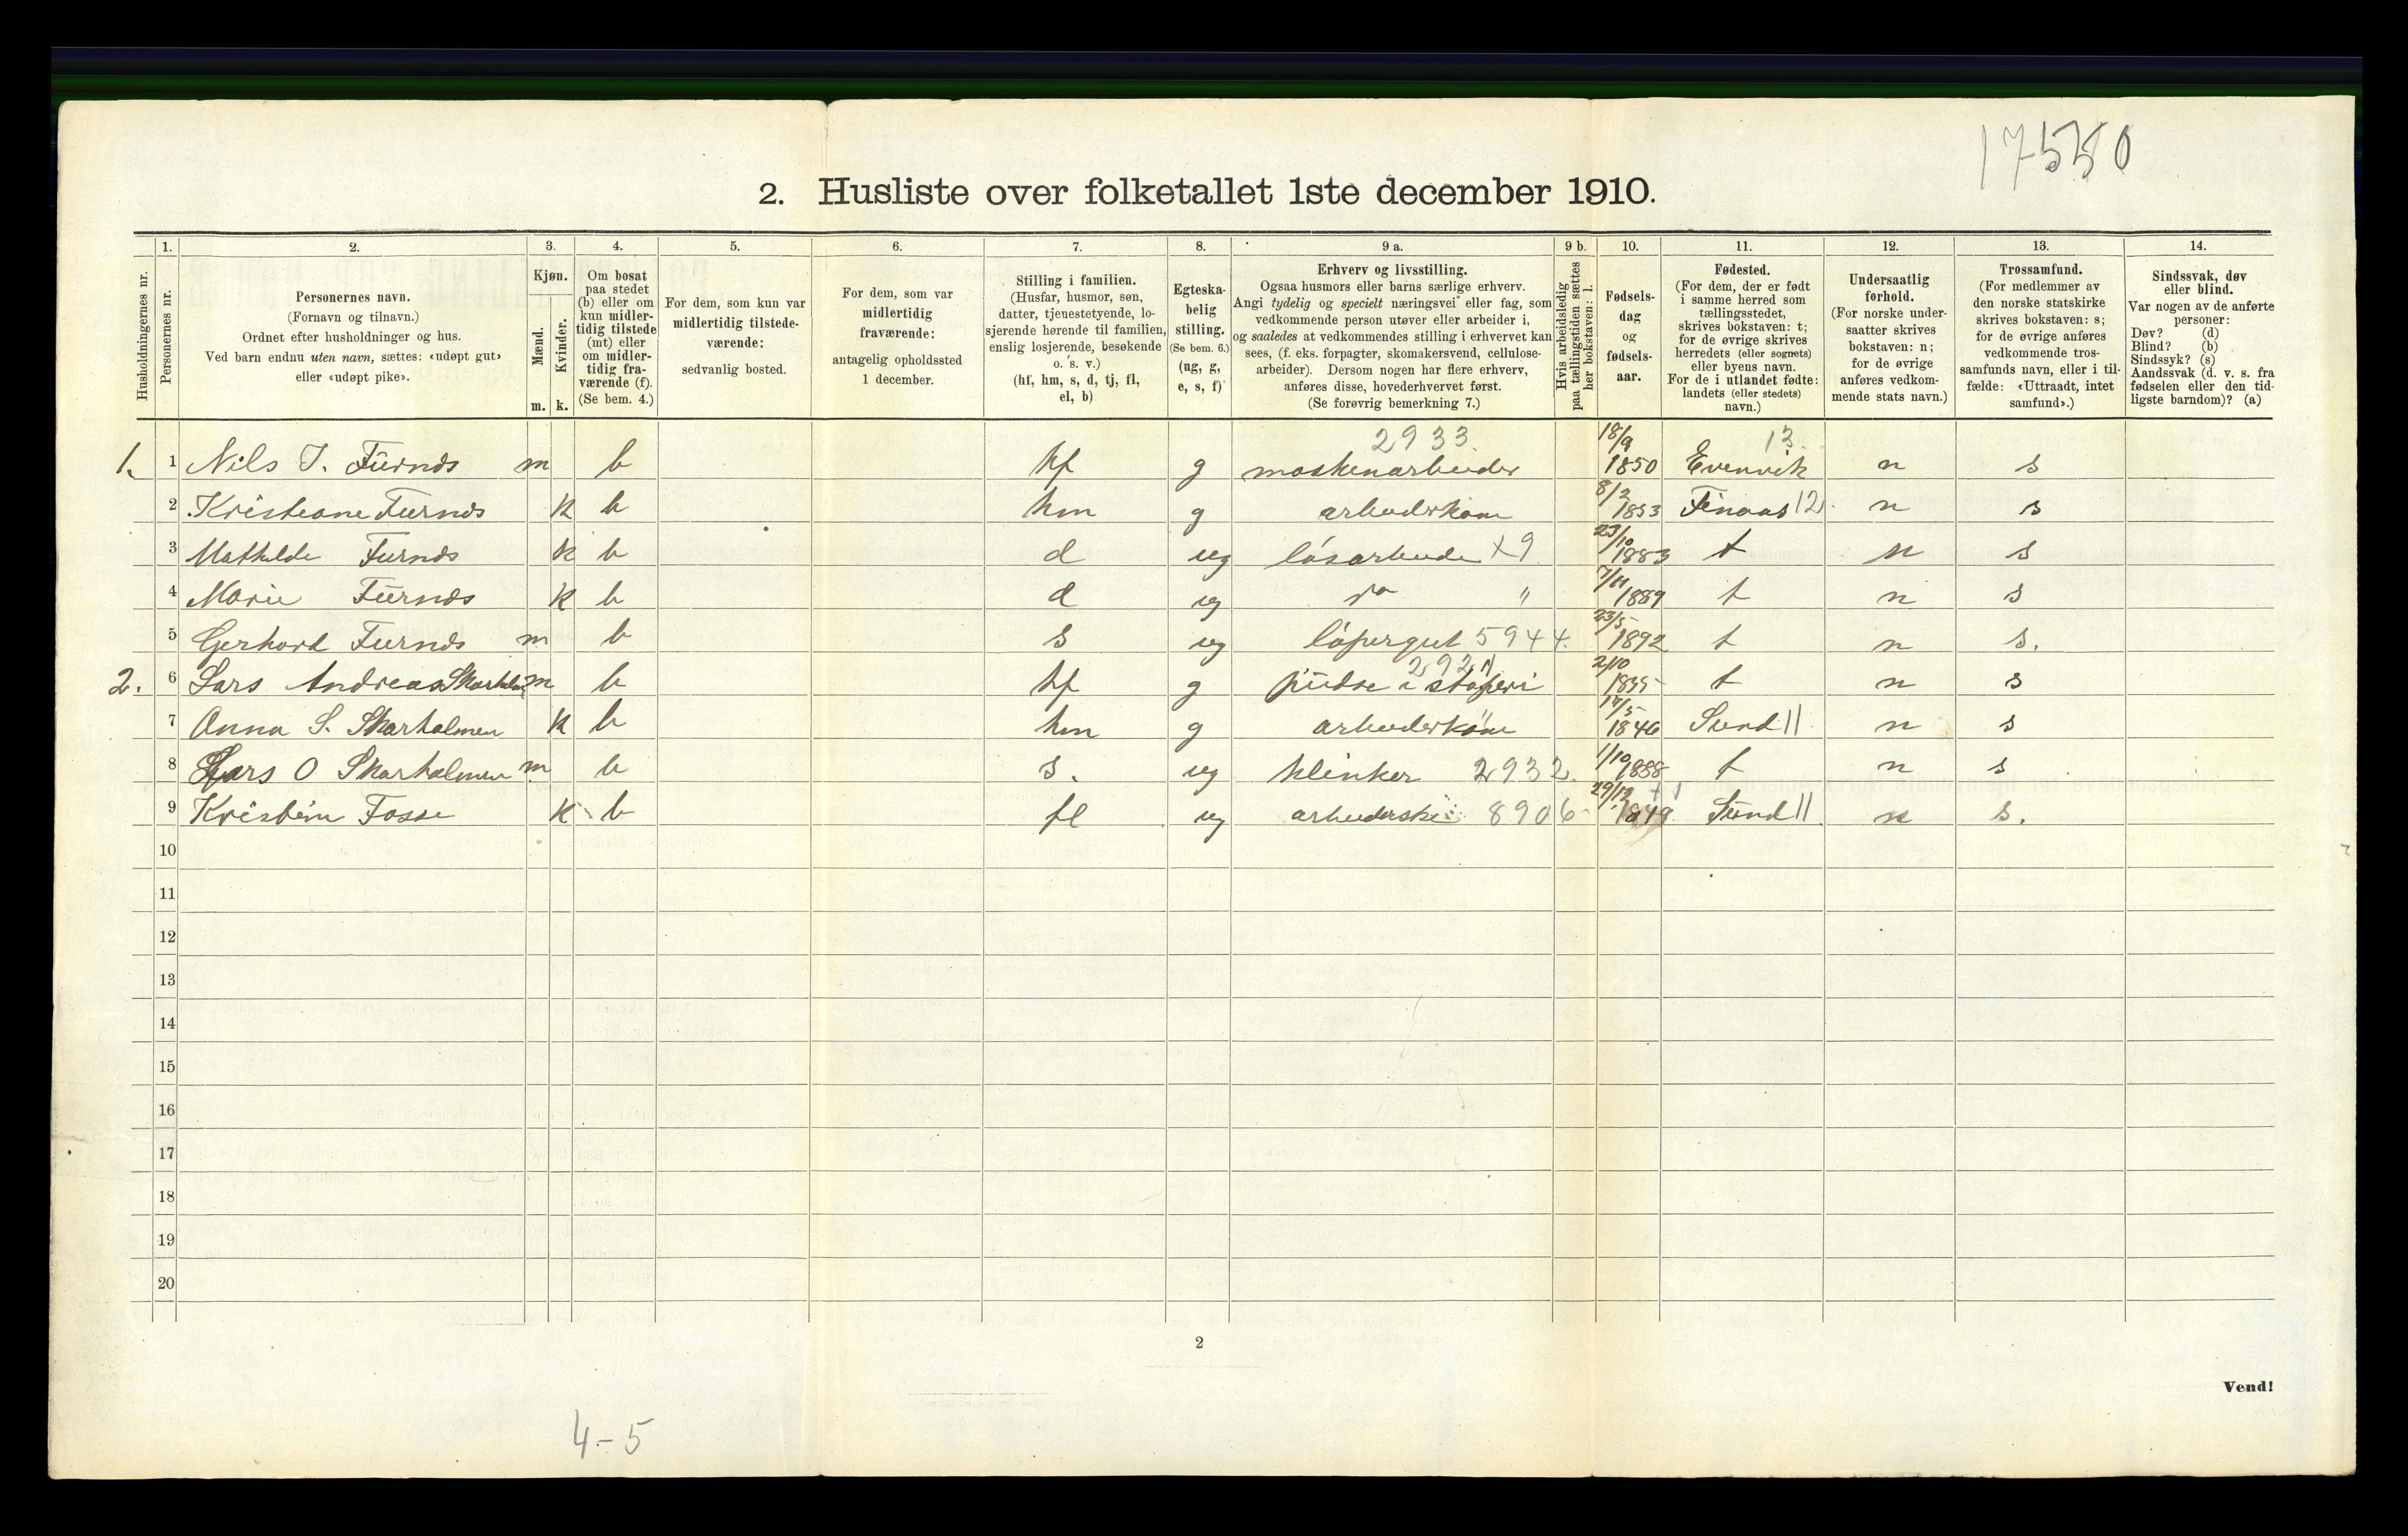 17550
2. Husliste over folketallet 1ste december 1910.
Husholdningernes nr.
1.
Personernes nr.
2.
Personernes navn.
(Fornavn og tilnavn.)
Ordnet efter husholdninger og hus.
Ved barn endnu uten navn, sættes: «udøpt gut»
eller «udøpt pike».
3.
Kjøn.
Mænd.
Kvinder.
m. k.
4.
Om bosat
paa stedet
(b) eller om
kun midler-
tidig tilstede
(mt) eller
om midler-
tidig fra-
værende (f).
(Se bem. 4.)
5.
For dem, som kun var
midlertidig tilstede-
værende:
sedvanlig bosted.
6.
For dem, som var
midlertidig
fraværende:
antagelig opholdssted
1 december.
7.
Stilling i familien.
(Husfar, husmor, søn,
datter, tjenestetyende, lo-
sjerende hørende til familien,
enslig losjerende, besøkende
o. s. v.)
(hf, hm, s, d, tj, fl,
el, b)
8.
Egteska-
belig
stilling.
(Se bem. 6.)
(ug, g,
e, s, f)
9 a.
Erhverv og livsstilling.
Ogsaa husmors eller barns særlige erhverv.
Angi tydelig og specielt næringsvei eller fag, som
vedkommende person utøver eller arbeider i,
og saaledes at vedkommendes stilling i erhvervet kan
sees, (f. eks. forpagter, skomakersvend, cellulose-
arbeider). Dersom nogen har flere erhverv,
anføres disse, hovederhvervet først.
(Se forøvrig bemerkning 7.)
9 b.
Hvis arbeidsledig
paa tællingstiden sættes
her bokstaven: l.
10.
Fødsels-
dag
og
fødsels-
aar.
11.
Fødested.
(For dem, der er født
i samme herred som
tællingsstedet,
skrives bokstaven: t;
for de øvrige skrives
herredets (eller sognets)
eller byens navn.
For de i utlandet fødte:
landets (eller stedets)
navn.)
12.
Undersaatlig
forhold.
(For norske under-
saatter skrives
bokstaven: n;
for de øvrige
anføres vedkom-
mende stats navn.)
13.
Trossamfund.
(For medlemmer av
den norske statskirke
skrives bokstaven: s;
for de øvrige anføres
vedkommende tros-
samfunds navn, eller i til-
fælde: «Uttraadt, intet
samfund».)
14.
Sindssvak, døv
eller blind.
Var nogen av de anførte
personer:
Døv? (d)
Blind? (b)
Sindssyk? (s)
Aandssvak (d. v. s. fra
fødselen eller den tid-
ligste barndom)? (a)
2933. 18/9 13.
1. 1 Nils J. Furnds m b hf g maskenarbeider 1850 Evenvik n s
2 Kristiane Furnds k b hm g arbeiderkone 8/2 1853 Finaas 12. n s
3 Mathilde Furnds k b d ug løsarbeide x9 23/10 1883 t n s
4 Marie Furnds k b d ug " 7/11 1889 t n s
5 Gerhard Furnds m b s ug løpergut 5944. 23/5 1892 t n s.
6 2. Lars Andreas m b hf g pudse i støperi 2/10 t n s
7 Anna S. Skarholmen k b hm g arbeiderkone 17/5 1846 Sund 11 n s
8 Lars O Skarholmen m b s. ug klinker 2932. 1/10 1888 t n s
9 Kristine Fosse k b fl ug arbeiderske 8906 29/12 1849 Sund 11 n s.
10
11
12
13
14
15
16
17
18
19
20
2
Vend!
4-5